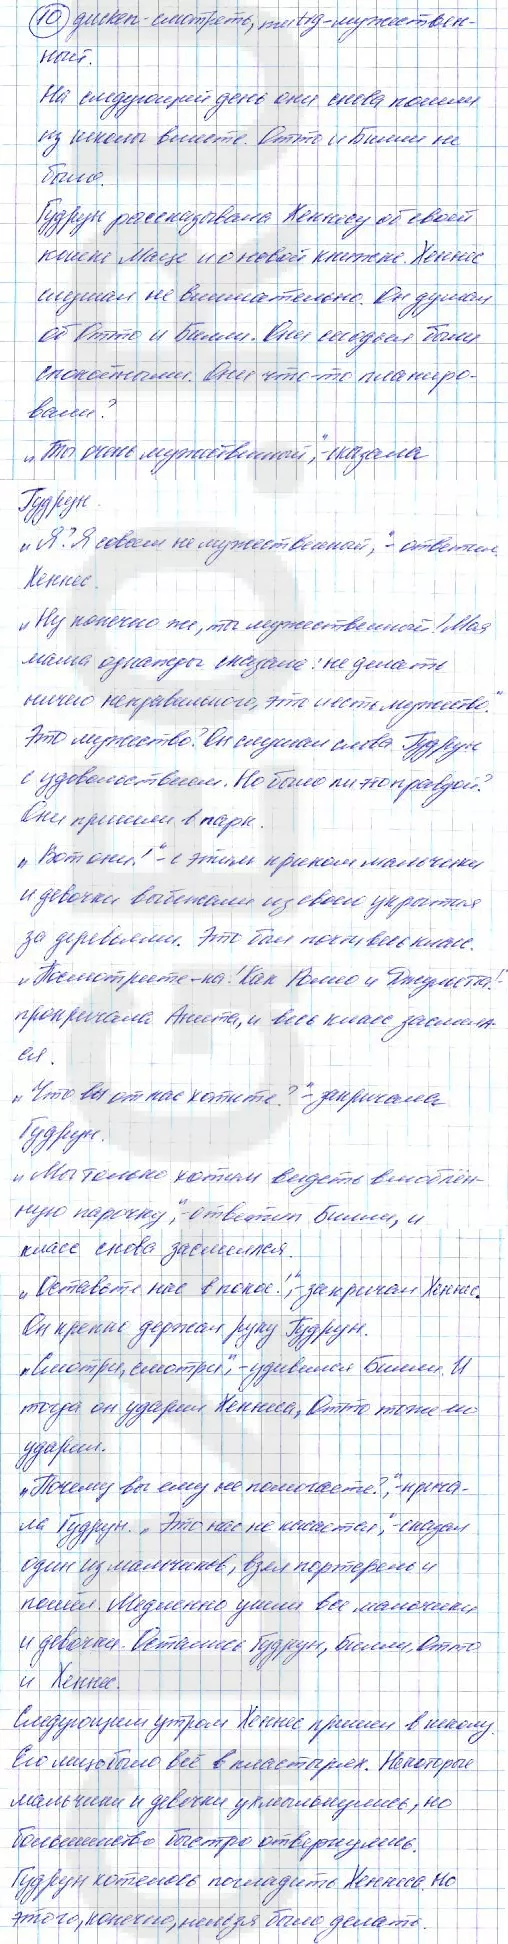 10) gucken - смотреть, mutig - мужествен-
ный.
На следующий день они снова пошли
из школы вместе. Отто и Билли не
было.
Гудрун рассказывала Хеннесу об своей
кошке Маце и о новой книжке. Хеннес
слушал не внимательно. Он думал
об Отто и Билли. Они сегодня были
спокойными. Они что-то планиро-
вали?
„Ты очень мужественный", - сказала
Гудрун.
„Я? Я совсем не мужественный," - ответил
Хеннес.
„Ну конечно же, ты мужественный! Моя
мама однажды сказала: не делать
ничего неправильного, это и есть мужество."
Это мужество? Он слушал слова Гудрун
с удовольствием. Но было ли это правдой?
Они пришли в парк.
„Вот они!" - с этим криком мальчики
и девочки выбежали из своего укрытия
за деревьями. Это был почти весь класс.
„Посмотрите-ка! Как Ромео и Джульетта!" -
прокричала Анита, и весь класс засмеял-
ся.
„Что вы от нас хотите?" - закричала
Гудрун.
„Мы только хотим видеть влюблён-
ную парочку", - ответил Билли, и
класс снова засмеялся.
„Оставьте нас в покое!", - закричал Хеннес.
Он крепко держал руку Гудрун.
„Смотри, смотри", - удивился Билли. И
тогда он ударил Хеннеса, Отто тоже по
ударил.
„Почему вы ему не помогаете?", - крича-
ла Гудрун. „Это нас не касается", - сказал
один из мальчиков, взял портфель и
пошёл. Медленно ушли все мальчики
и девочки. Остались Гудрун, Билли, Отто
и Хеннес.
Следующим утром Хеннес пришел в школу.
Его лицо было всё в пластырях. Некоторые
мальчики и девочки ухмыльнулись, но
большинство быстро отвернулись.
Гудрун хотелось погладить Хеннеса. Но
этого, конечно, нельзя было делать.